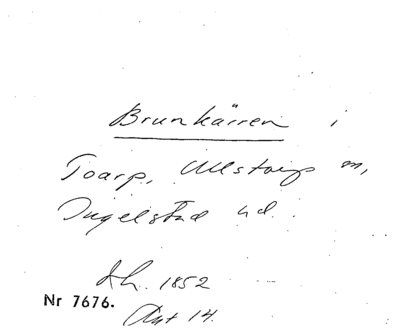 Brunkärren i
Toarp, Ullstorps sn,
Ingelstad hd.
Sh. 1852
Nr 7676.
Akt 14.